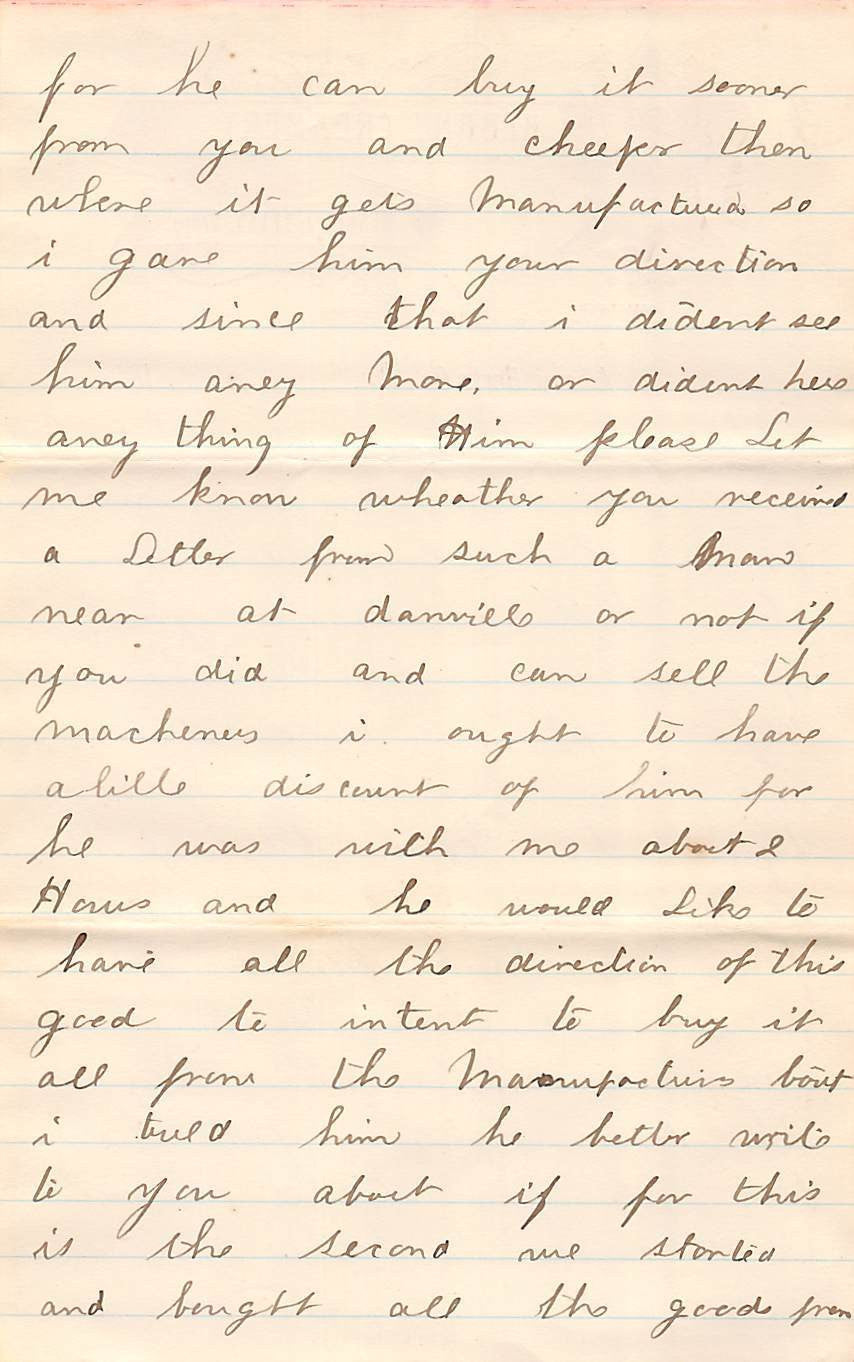 for he can buy it sooner
from you and cheeper then
where it gets Manufactured so
i gave him your direction
and since that i dident see
him aney More, or dident hear
aney thing of Him please Let
me know wheather you received
a Letter from such a Man
near at danville or not if
you did and can sell the
macheners i ought to have
a litle discount of him for
he was with me about 2
Hours and he would Like to
have all the direction of this
good to intent to buy it
all from the Manufacturs bout
i tuld him he better write
to you about if for this
is the second we started
and bought all the goods from